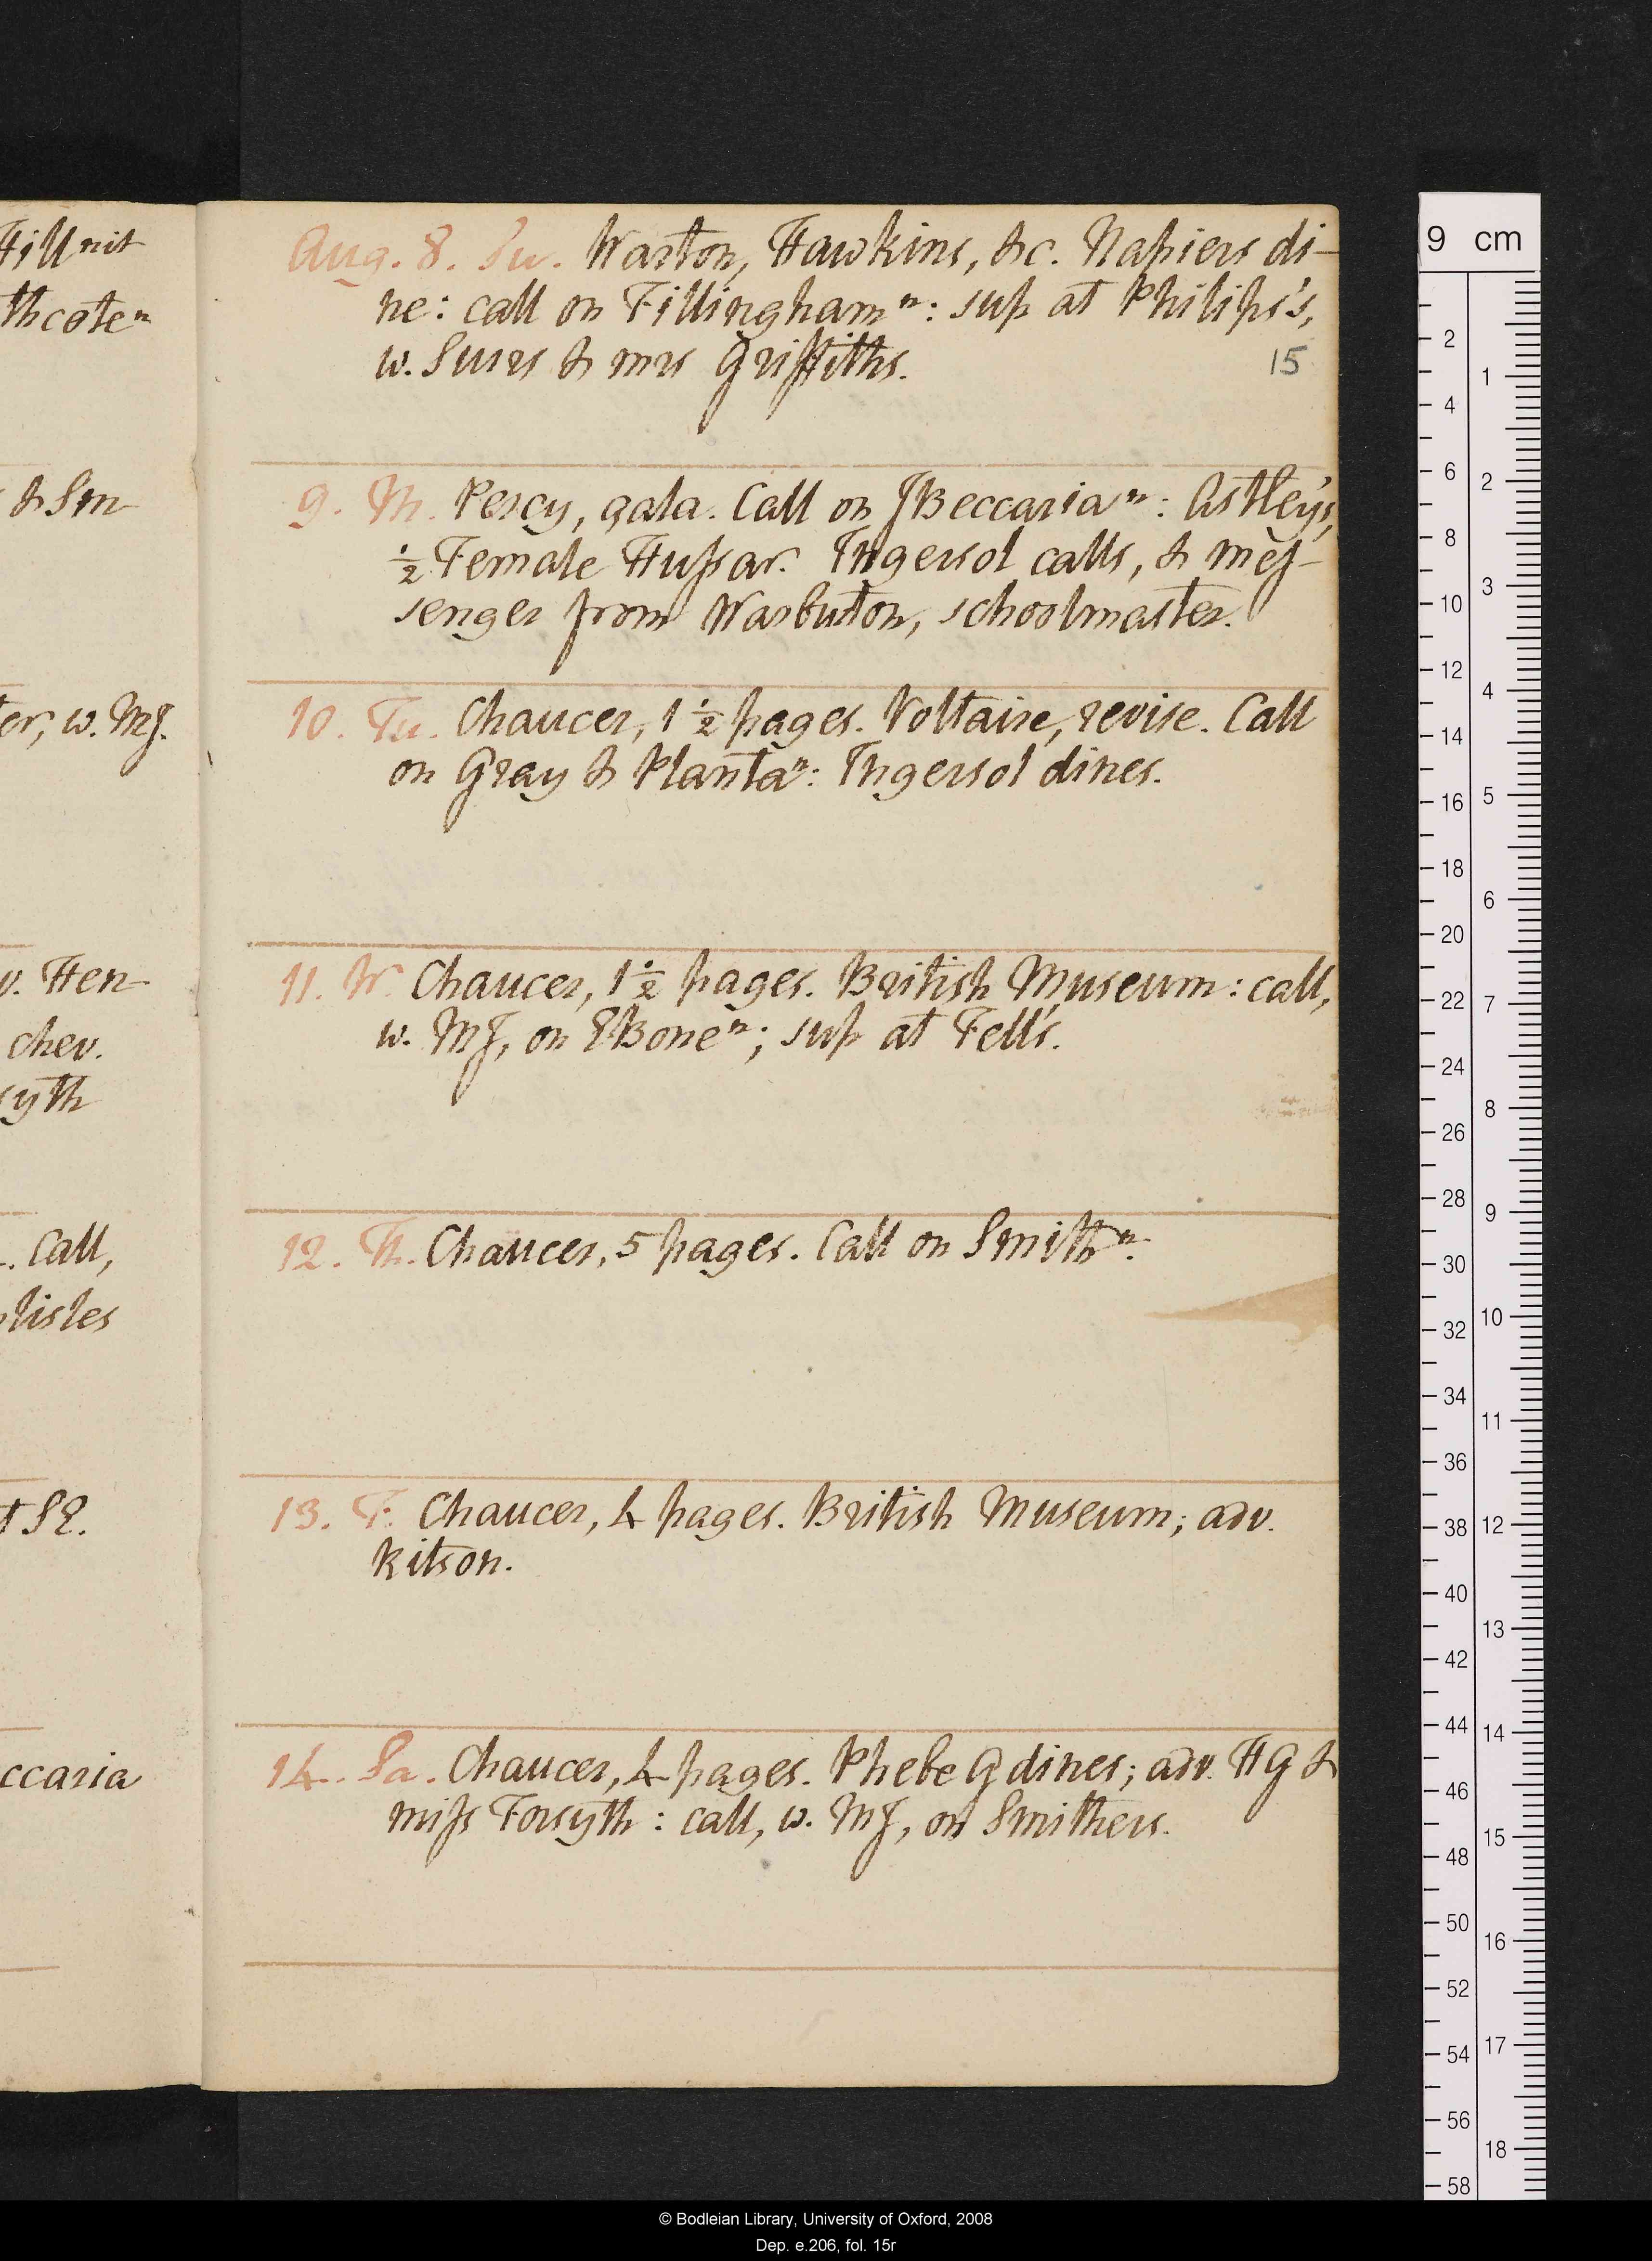 Hill nit
thcoten
& Sm
ter, w. MJ.
v. Hen-
chev.
syth
. Call,
lisles
t SE.
ccaria
Aug. 8. Su. Warton, Hawkins, &c. Napiers di-
ne: call on Fillingham n: sup at Philips's,
w. Surrs & mrs Griffiths.
15
9. M. Percy, gala. Call on JBeccaria n: Astley's,
½ Female Hussar. Ingersol calls, & mes-
senger from Warbuton, schoolmaster.
10. Tu. Chaucer, 1 ½ pages. Voltaire, revise. Call
on Gray & Planta n: Ingersol dines.
11. W. Chaucer, 1 ½ pages. British Museum: call,
w. MJ, on EBone n; sup at Fell's.
12. Th. Chaucer, 5 pages. Call on Smith n.
13. F. Chaucer, 4 pages. British Museum; adv.
Kitson.
14. Sa. Chaucer, 4 pages. Phebe G dines; adv. HG &
miss Forsyth: call, w. MJ, on Smithers.
9 cm
2
4
6
8
10
12
14
16
18
20
22
24
26
28
30
32
34
36
38
40
42
44
46
48
50
52
54
56
58
1
2
3
4
5
6
7
8
9
10
11
12
13
14
15
16
17
18
© Bodleian Library, University of Oxford, 2008
Dep. e.206, fol. 15r